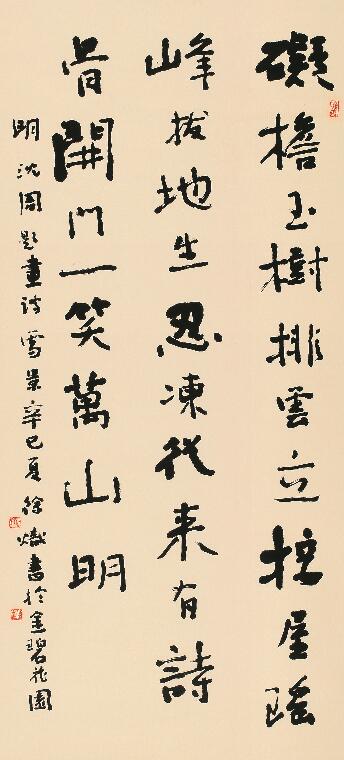 礙檐玉樹排雲立控屋瑤
峰拔地生忍凍從来有詩
骨開門一笑萬山明
明沈周题畫诗雪景辛巳夏徐書於金碧花園